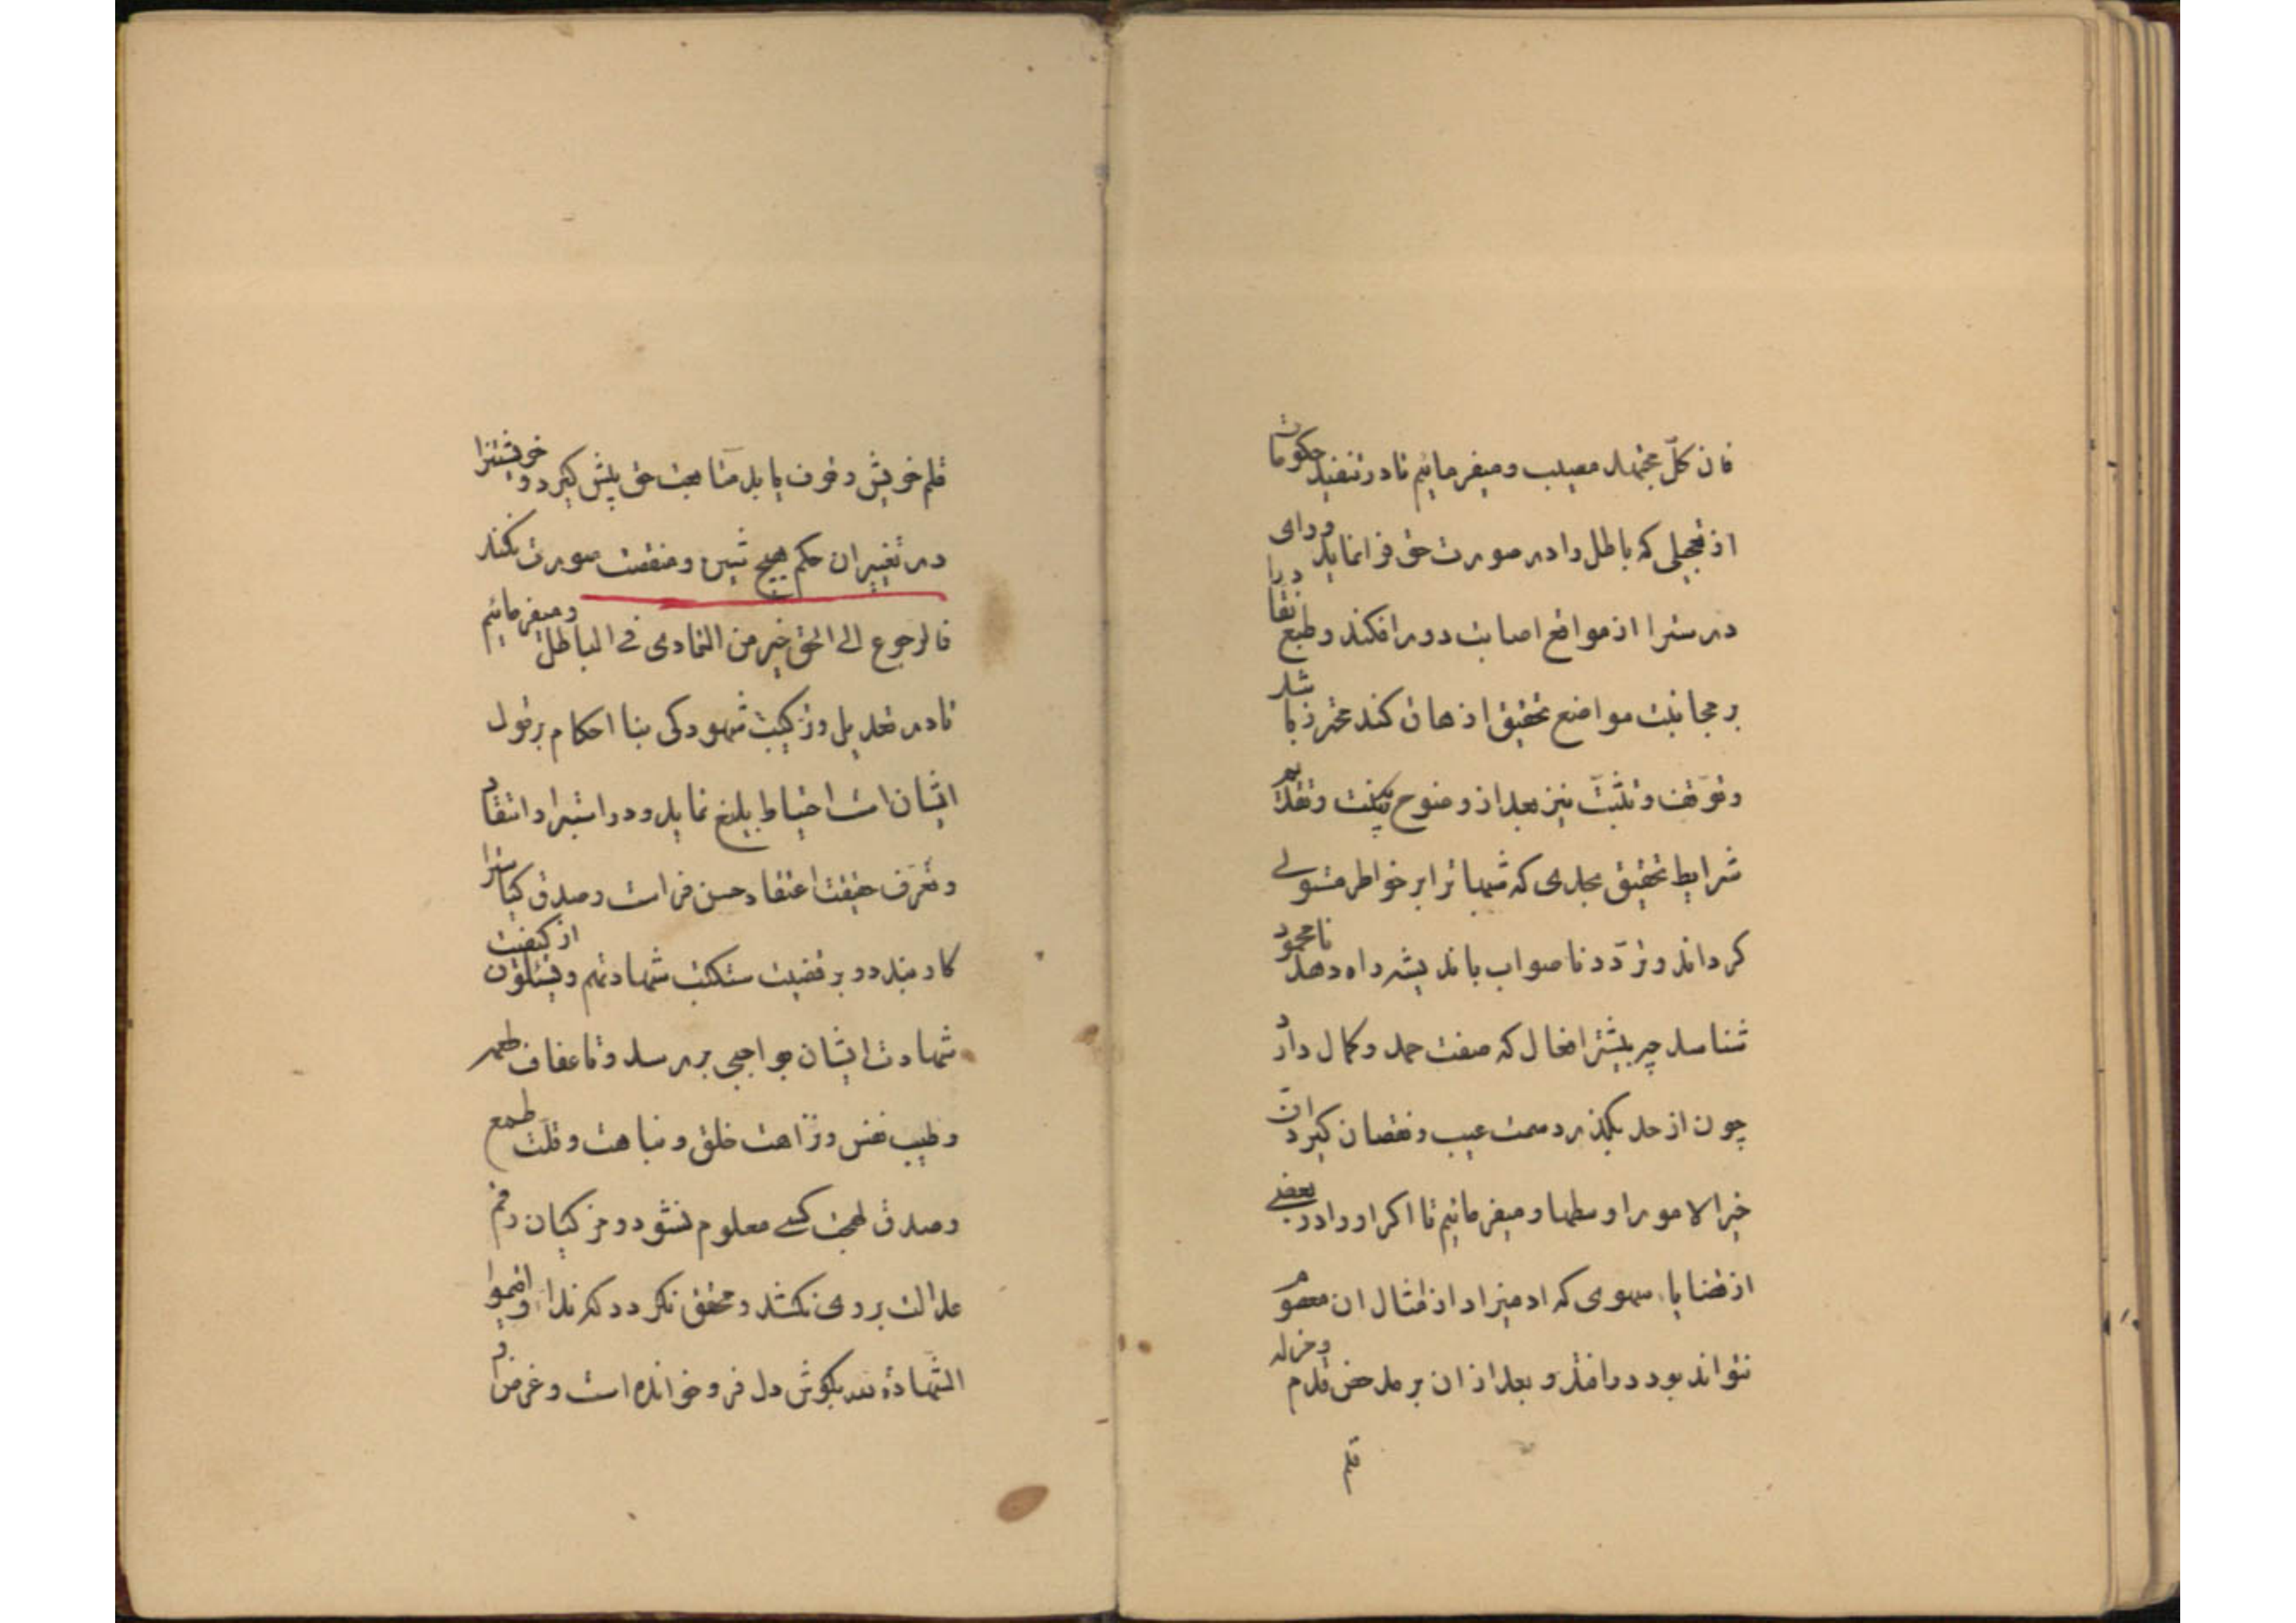 فان کلّ مجتهد مصیب و میفرمائیم تا در تنفیذ حکومات
از تعجیلی که باطل را در صورت حق فرا نماید و رای
در سترا از مواقع اصابت دور افکند و طبع
بر مجانبت مواضع تحقیق اذهان کند محترز باشد
و توقف و تثبّت نیز بعد از وضوح بینت و تقدیم
شرایط تحقیق بحدی که شبهات را بر خواطر مستولی
کرداند و تردّد ناصواب باندیشه راه دهد نا محمود
شناسد چه بیشتر افعال که صفت حمد و کمال دارد
چون از حد بگذرد سمت عیب و نقصان کیرد انّ
خیر الامور اوسطها و میفرمائیم تا اکر او را در بعضی
از قضایا سهوی که ادمیزاد از امثال ان معصوم
نتواند بود در افتد و بعد از ان بر مدحض قدم و خزله
قلم
قلم خویش وقوف یابد متابعت حق پیش کیرد و خویشتنرا
در تغییر ان حکم هیچ شین و منقصت صورت نکند
فالرجوع الی الحق خیر من التمادی فی الباطل و میفرمائیم
تا در تعدیل و تزکیت شهود کی بنا احکام بر قول
ایشان است احتیاط بلیغ نماید و در استبرا و انتقاد
و تعرّف حقیقت اعتقاد حسن فراست و صدق کیاسترا
کار بندد و بر قضیت ستکتب شهادتهم و یسئلون از کیفیت
شهادت ایشان بواجبی بررسد و تا عفاف طعمه
و طیب نفس و نزاهت خلق و نباهت و قلّت طمع
و صدق لهجت کسی معلوم نشود و مزکیان رقم
عدالت بر وی نکشد و محقق نکردد که ندا و اقیموا
الشهادة لله بکوش دل فرو خوانده است و غرض